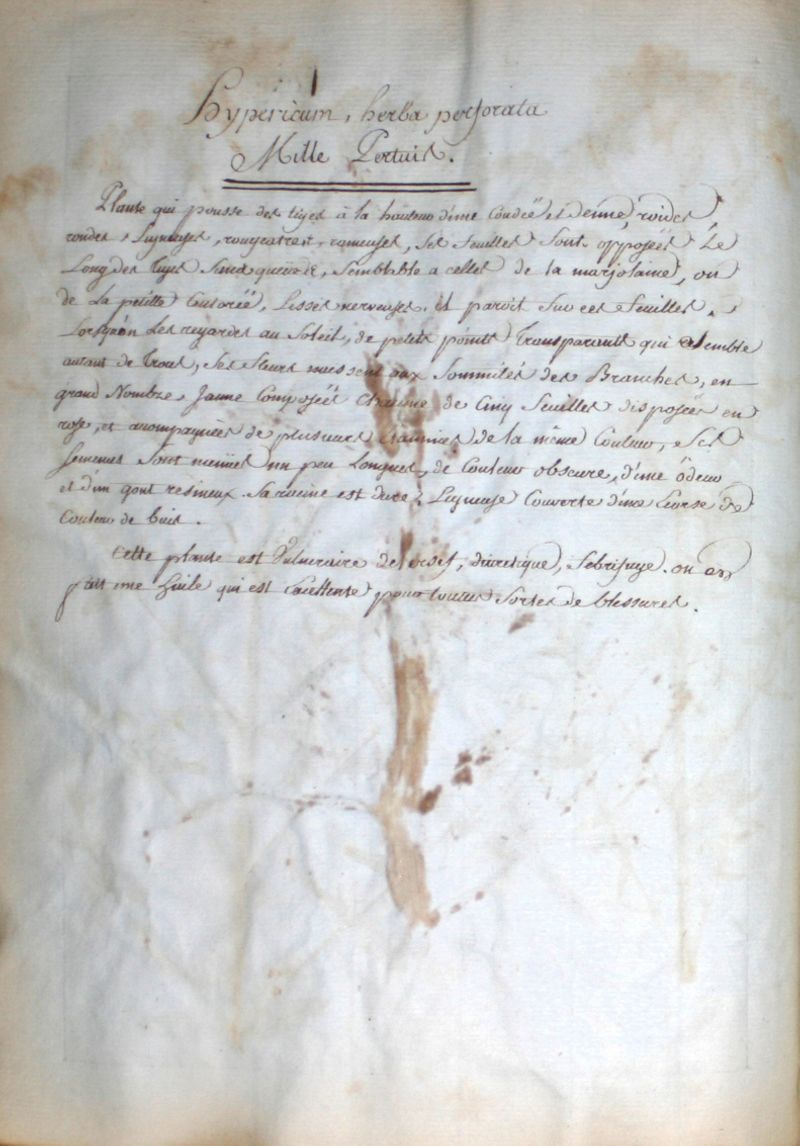 Hypericum, herba perforata
Mille Pertuis.
Plante qui pousse des tiges à la hauteur d'une Coudeë et demie, roides,
rondes, Ligneuses, rougeatres, rameuses, Ses feuilles Sont opposeës Le
Long des Tiges Sans queüe, Semblable a celles de la marjolaine, ou
de La petitte Centoreë, Lisses nerveuses. il paroit Sur ces feuilles,
Lorsqu'on Les regardes au Soleil, de petits points Transparants qui Semble
autant de Trous, Ses fleurs naissent aux Sommités des Branches, en
grand Nombre, Jaune Composeës Chacune de Cinq feuilles disposeës en
rose, et acompagnieës de plusieurs Etamines de la même Couleur, Ses
Semences Sont menües un peu Longues, de Couleur obscure, d'une ödeur
et d'un gout résineux. Sa racine est dure, Ligneuse Couverte d'une Ecorse de
Couleur de buis.
Cette plante est Vulneraire diuretique, febrifuge. on en
fait une huile qui est Excellente pour toutes Sortes de blessures.